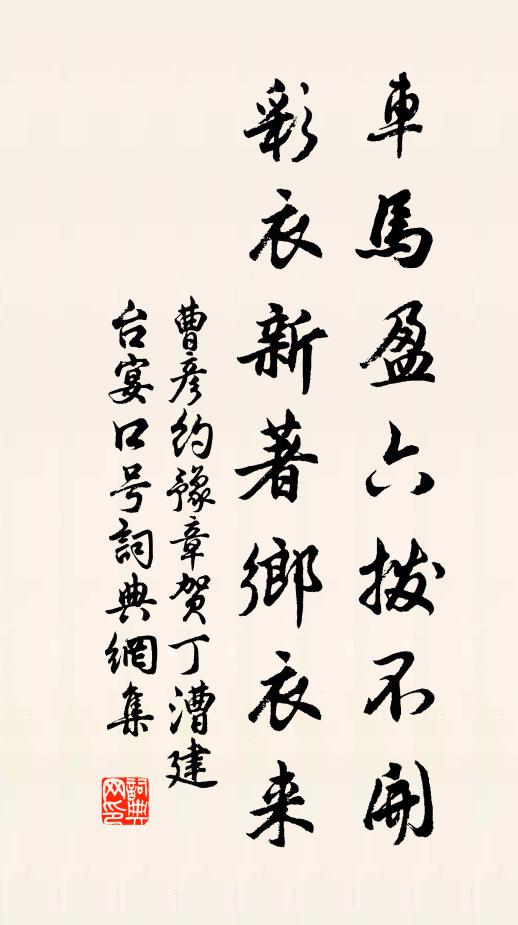 車馬盈六撥不開
彩衣新著鄉衣来
曹彦約豫章賀丁漕建
台宴口号詞典網集
詞典网印